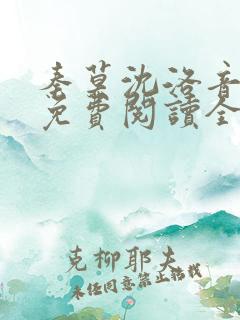 秦墓沈洛音
免費閱讀全
克柳耶夫
未经同意禁止转载